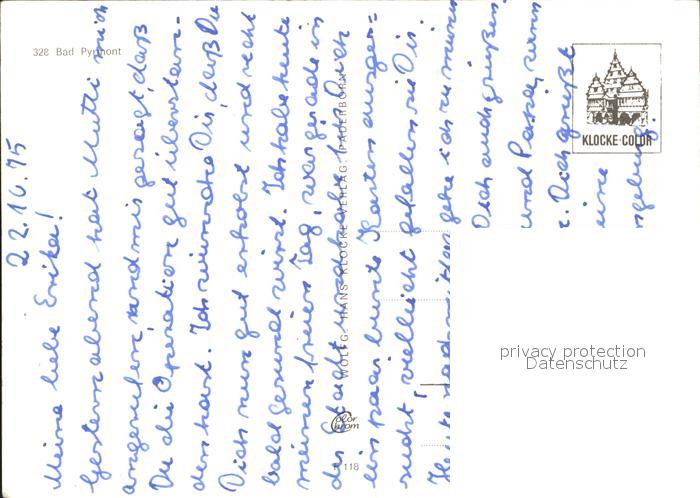 328 Bad Pyrmont
22.10.75
Meine liebe Erika!
Gestern abend hat Mutti mich
angerufen und mir gesagt, daß
Du die Operation gut überstan-
den hast. Ich wünsche Dir, daß Du
Dich nun gut erholst und recht
bald gesund wirst. Ich habe heute
meinen freien Tag, war gerade in
der Stadt und habe für Dich
ein paar bunte Karten ausge-
sucht vielleicht gefallen sie Dir.
Heute nachmittag gehe ich zu
Dich auch grüßen.
und Papa, wenn
Dich grüßt
eine
KLOCKE-COLOR
WOLFG. HANS KLOCKE VERLAG, PADERBORN
Color Chrom
118
privacy protection
Datenschutz